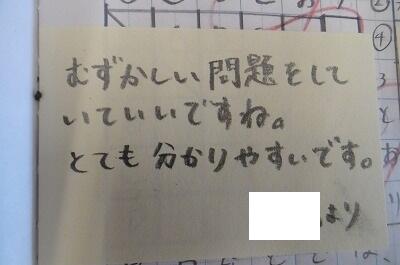 むずかしい問題をして
いていいですね。
とても分かりやすいです。
より